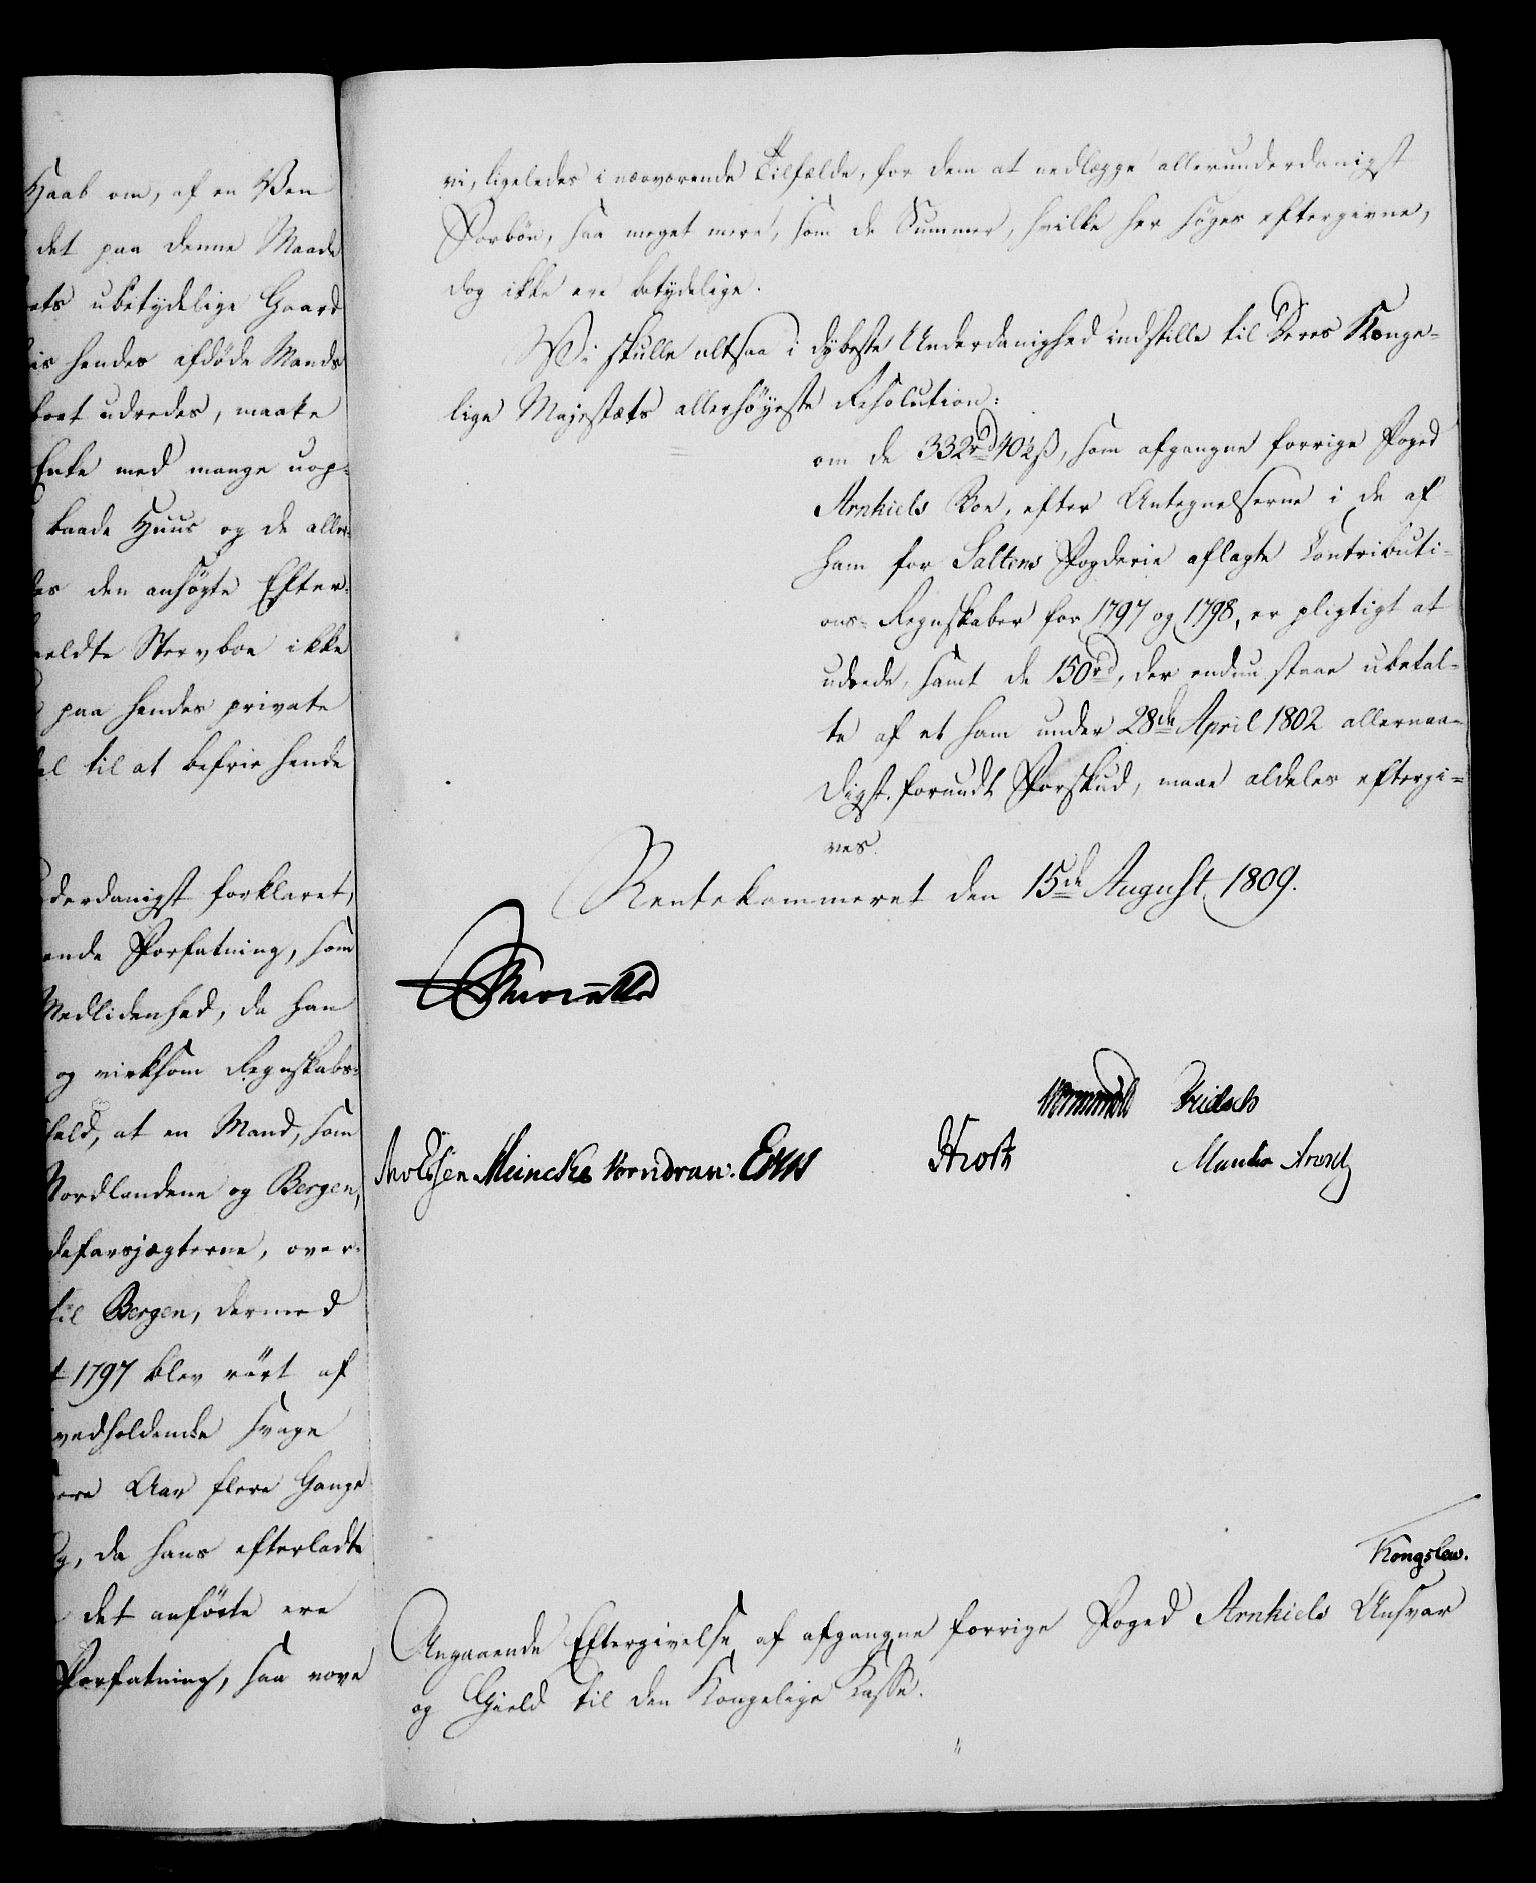 Haab om, af en Ven
det paa denne Maade
ubetydelige Gaard
hendes afdöde Mands
udredes, maatte
Enke med mange uop-
baade Huus og de aller-
den ansögte Efter-
meldte Stervboe ikke
paa hendes private
til at befrie hende
derdanigst forklaret,
Forfatning, som
Medlidenhed, da han
og virksom Regnskabs-
at en Mand, som
Nordlandene og Bergen,
over-
til Bergen, dermed
1797 blev rört af
vedholdende svage
Aar flere Gange
da hans efterladte
det anförte ere
Forfatning, saa vove
vi, ligeledes i nærværende Tilfælde, for dem at nedlægge allerunderdanigst
Forbön, saa meget mere, som de Summer, hvilke her söges eftergivne,
dog ikke ere betydelige.
Vi skulle altsaa i dybeste Underdanighed indstille til Deres Konge-
lige Majestæts allerhöyeste Resolution:
om de 332rd 40½ß, som afgangne forrige Foged
Arnkiels Boe, efter Antegnelserne i de af
ham for Saltens Fogderie aflagte Contributi-
ons-Regnskaber for 1797 og 1798, er pligtigt at
udrede, samt de 150rd, der endnu staae ubetal-
te af et ham under 28de April 1802 allernaa-
digst forundt Forskud, maae aldeles eftergi-
ves.
Rentekammeret den 15de August 1809.
Wormskiold Fridsch
Meincke Vorndran.
Kongslew.
Angaaende Eftergivelse af afgangne forrige Foged Arnkiels Ansvar
og Gield til den Kongelige Kasse.